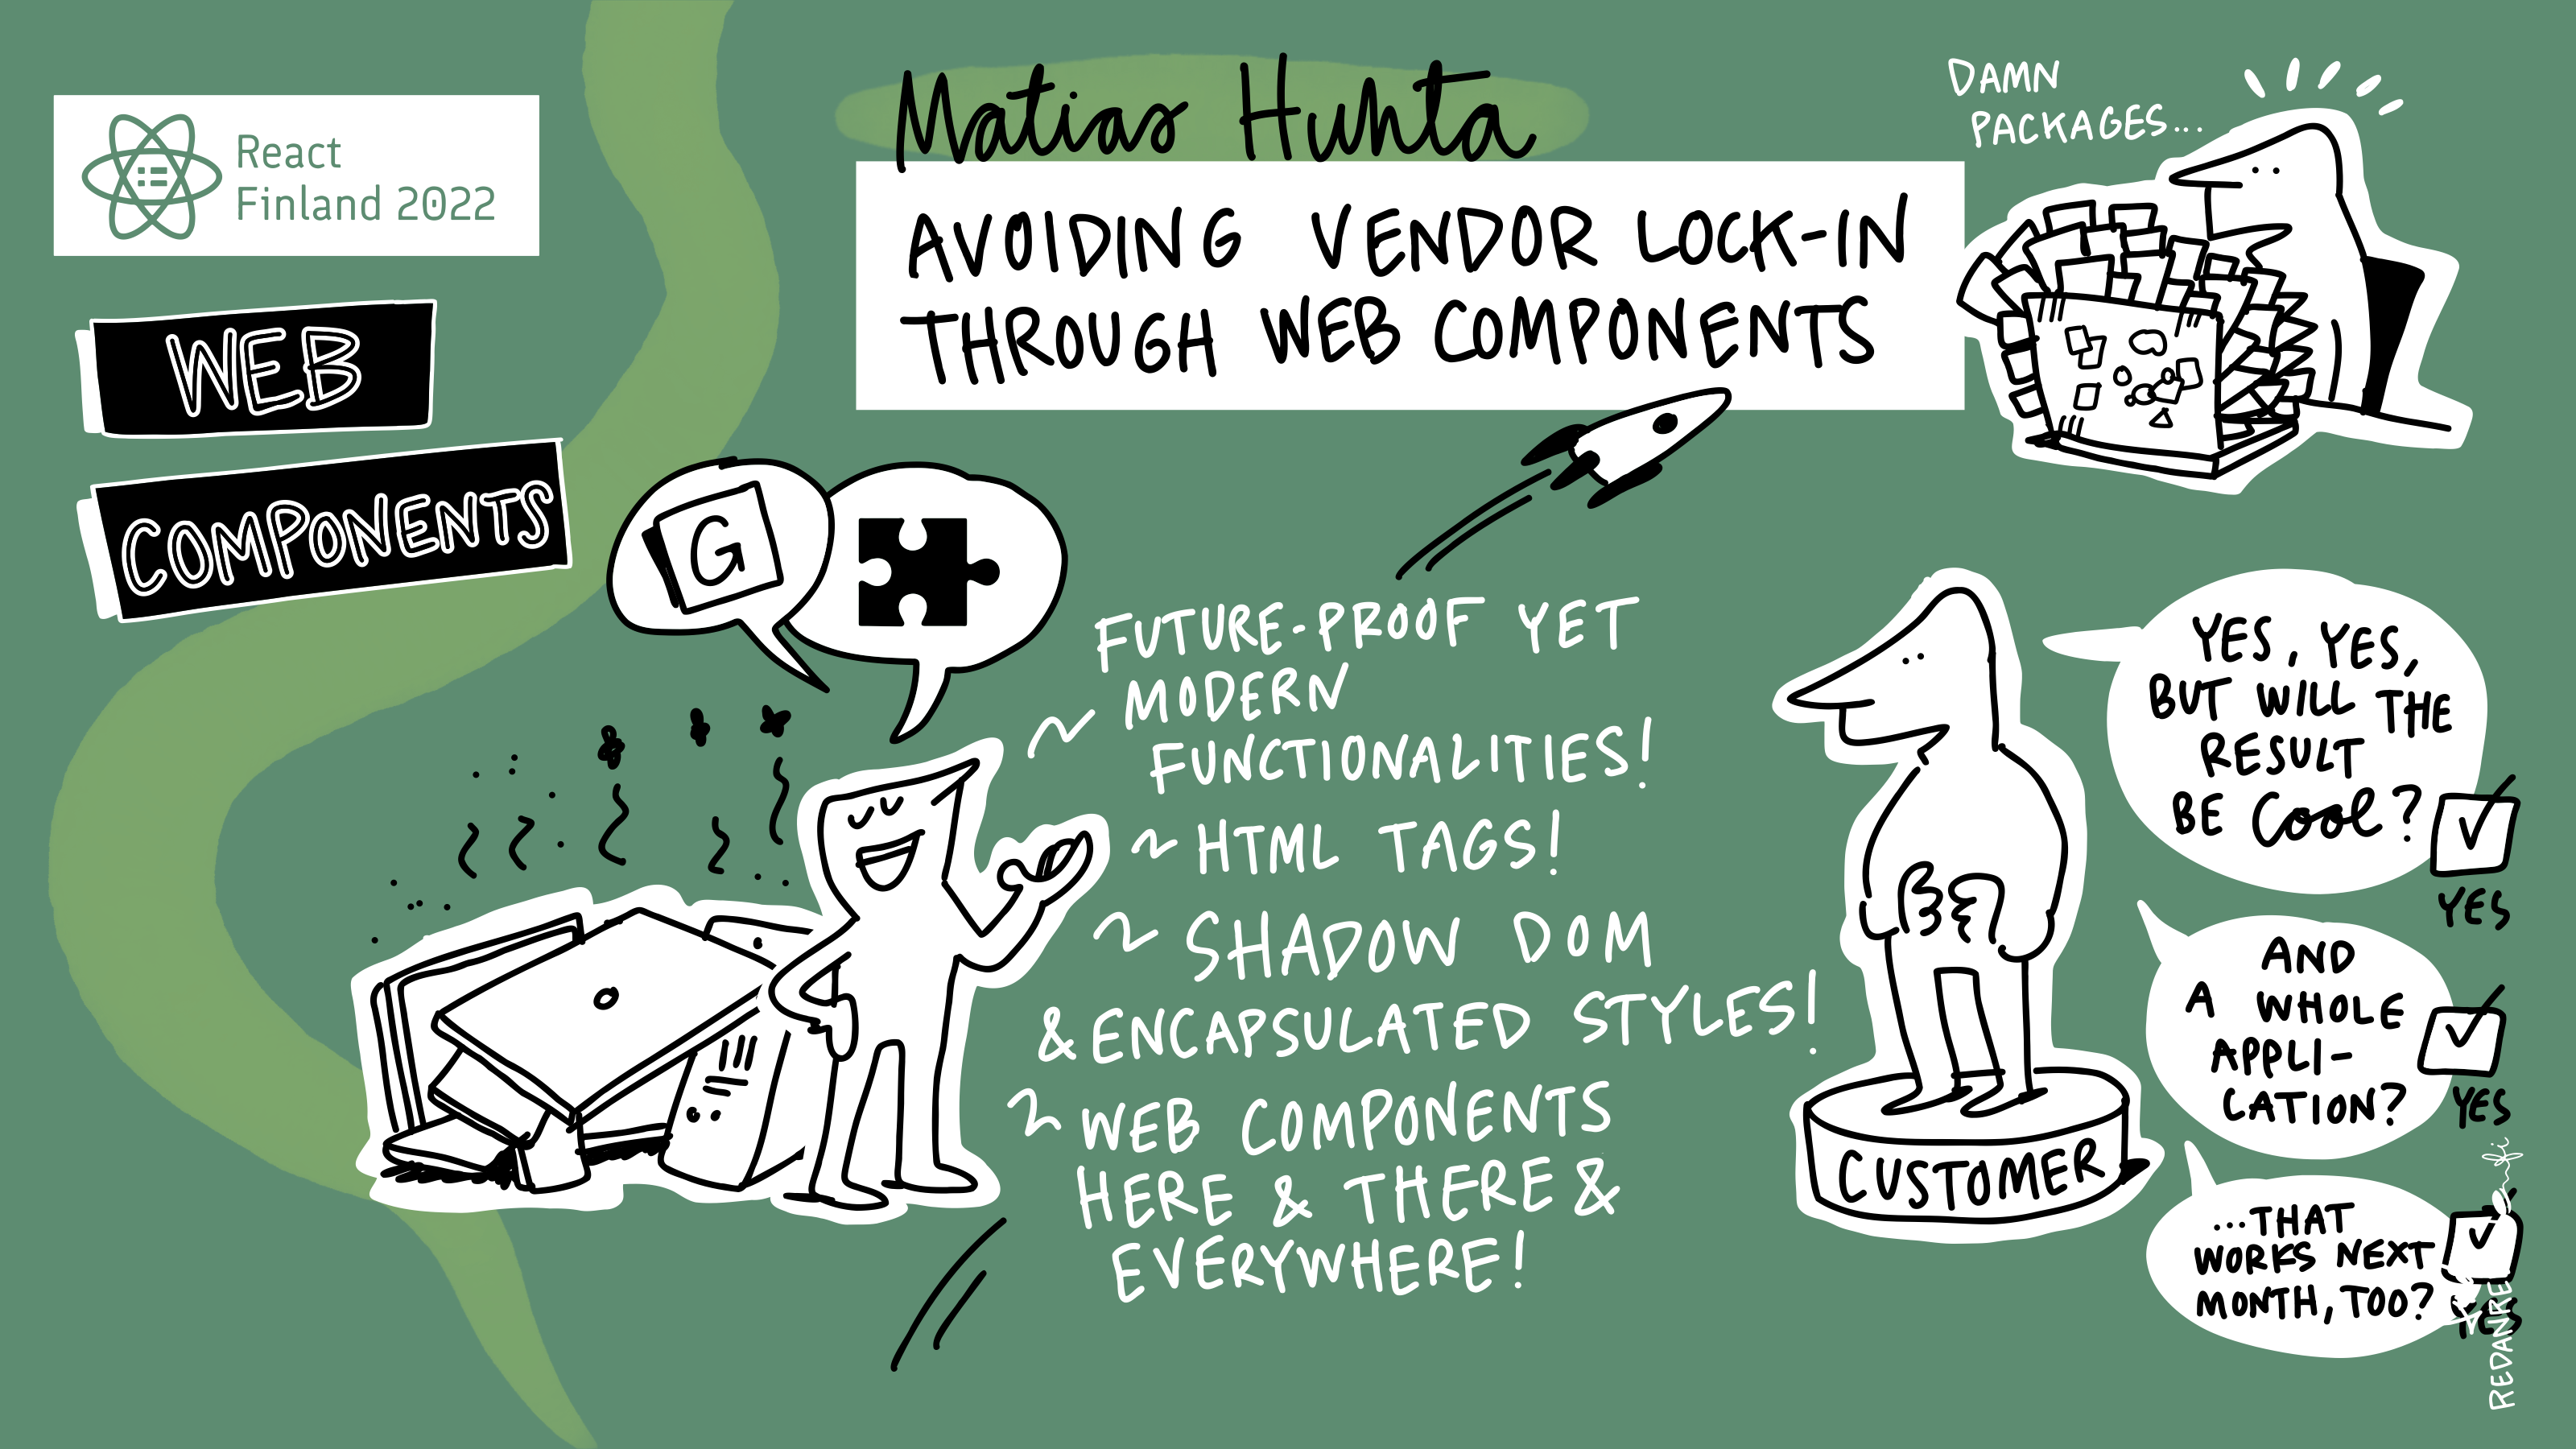 React
Finland 2022
WEB
COMPONENTS
Matias Huhta
AVOIDING VENDOR LOCK-IN
THROUGH WEB COMPONENTS
DAMN
PACKAGES...
G
FUTURE-PROOF YET
~ MODERN
FUNCTIONALITIES!
~ HTML TAGS!
~ SHADOW DOM
& ENCAPSULATED STYLES!
~ WEB COMPONENTS
HERE & THERE &
EVERYWHERE!
CUSTOMER
YES, YES,
BUT WILL THE
RESULT
BE Cool?
YES
AND
A WHOLE
APPLI-
CATION?
YES
...THAT
WORKS NEXT
MONTH, TOO?
YES
REDANREDAN